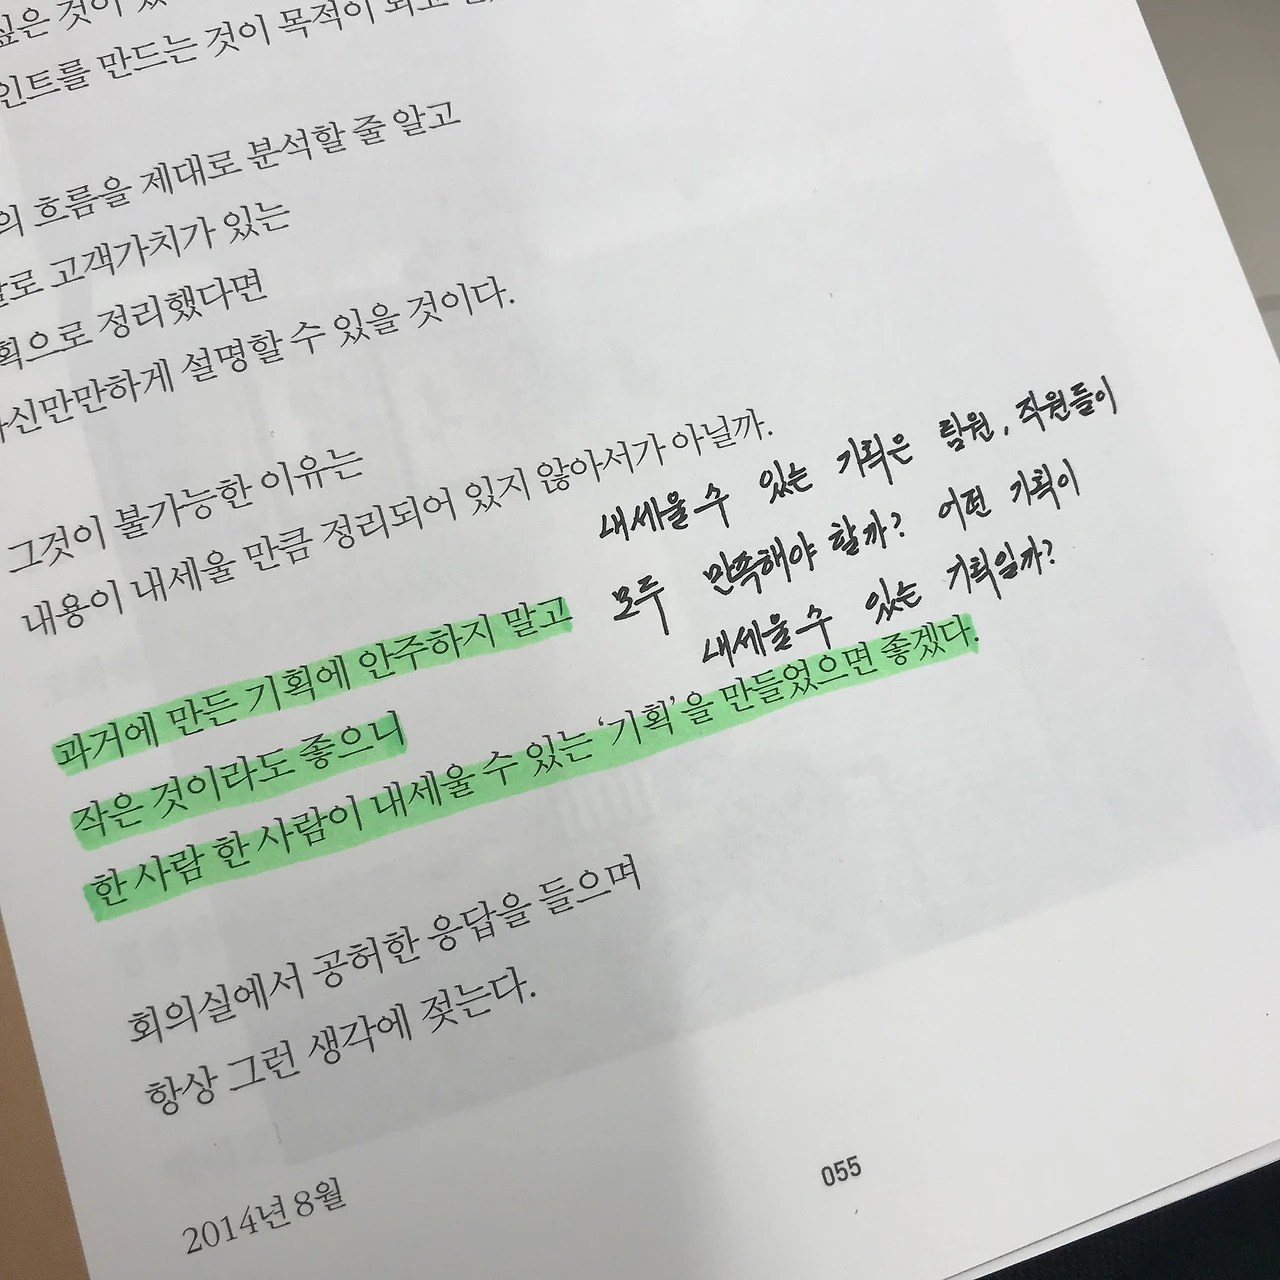 싶은 것이
인트를 만드는 것이 목적이 되고
의 흐름을 제대로 분석할 줄 알고
로 고객가치가 있는
획으로 정리했다면
자신만만하게 설명할 수 있을 것이다.
그것이 불가능한 이유는
내용이 내세울 만큼 정리되어 있지 않아서가 아닐까.
내세울 수 있는 기획은 팀원, 직원들이
모두 만족해야 할까? 어떤 기획이
내세울 수 있는 기획일까?
과거에 만든 기획에 안주하지 말고
작은 것이라도 좋으니
한 사람 한 사람이 내세울 수 있는 '기획'을 만들었으면 좋겠다.
회의실에서 공허한 응답을 들으며
항상 그런 생각에 젖는다.
2014년 8월
055